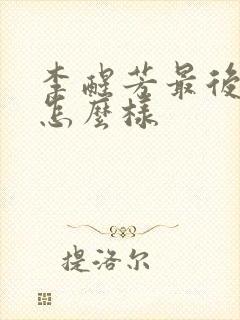 李醒芳最後
怎麼樣
提洛尔